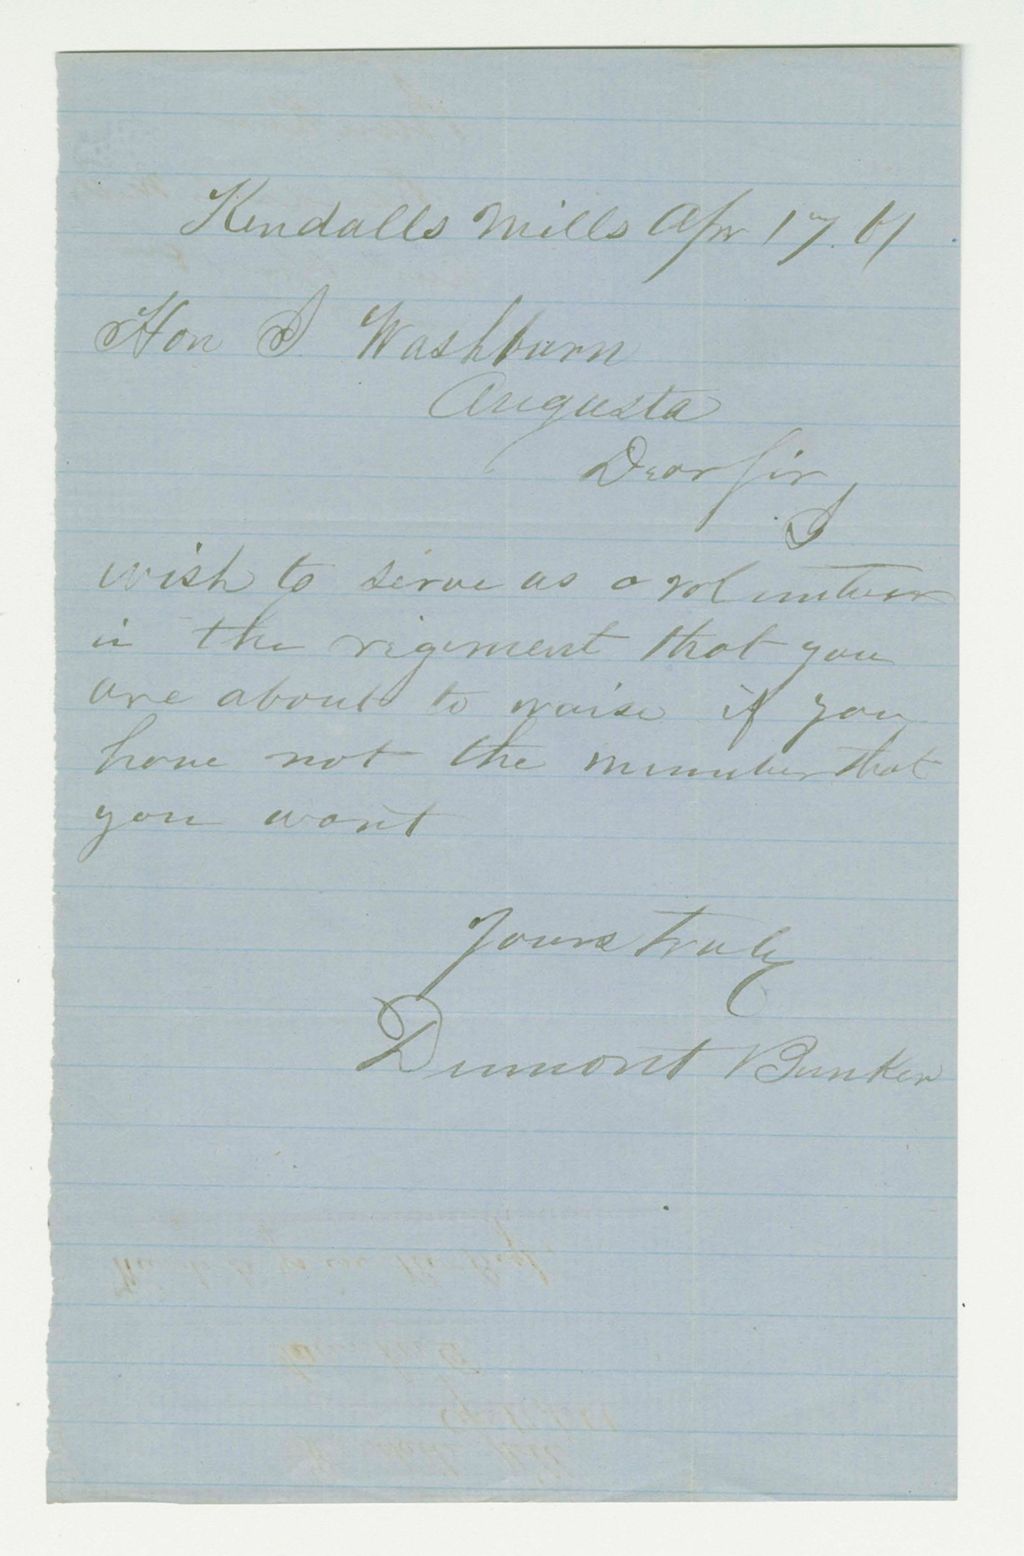 Kendalls Mills Apr 17. 61
Hon I Washburn
Augusta
Dear Sir
I
wish to serve as a volunteer
in the rigement that you
are about to raise if you
have not the number that
you want
Yours truly
Dumont Bunker